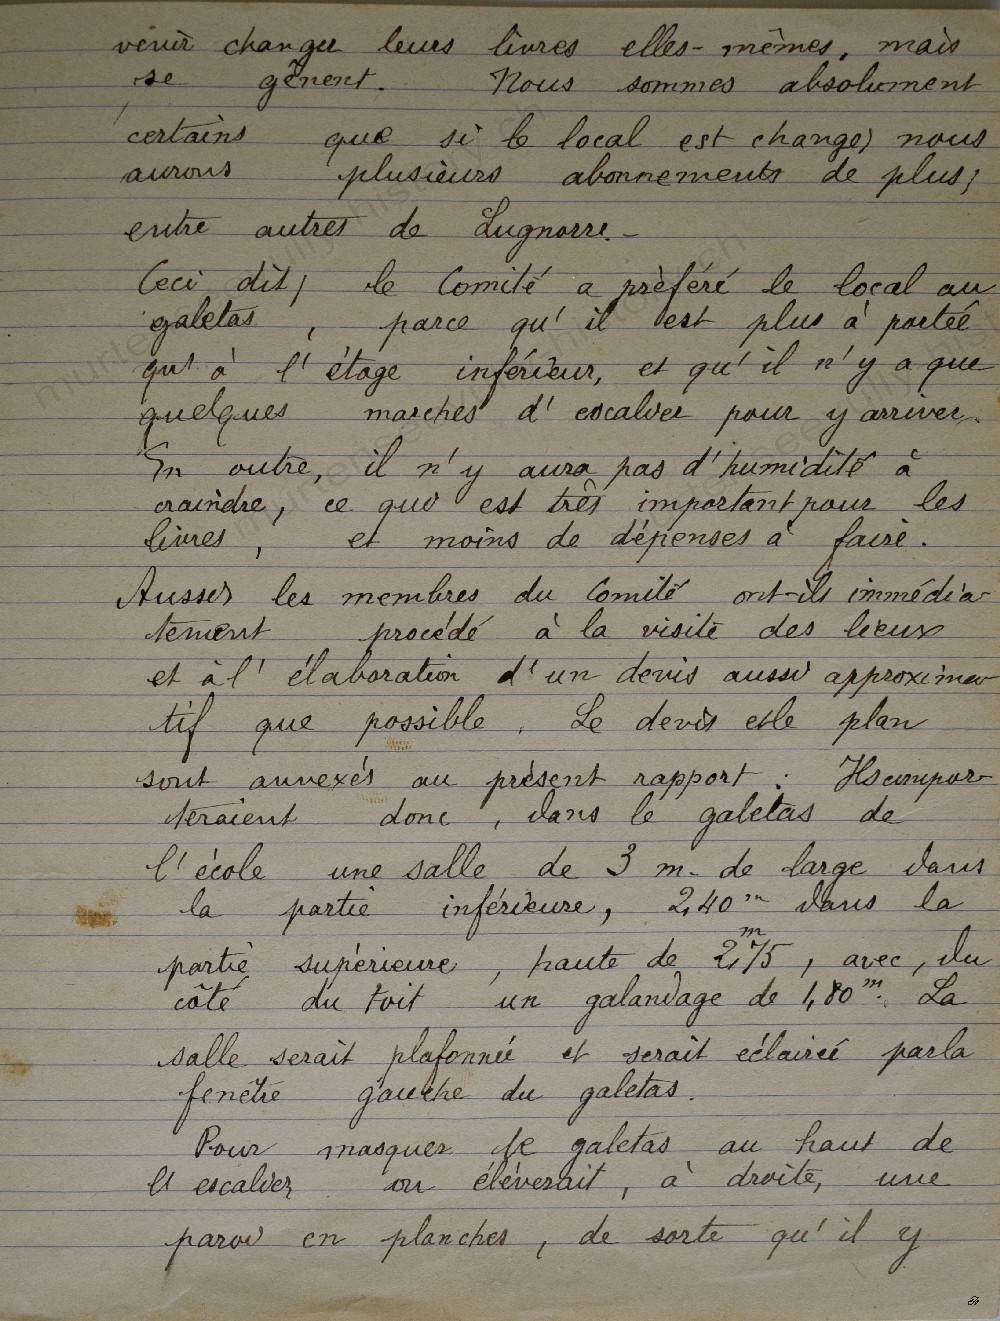 venir changer leurs livres elles-mêmes, mais
se gênent. Nous sommes absolument
certains que si le local est changé, nous
aurons plusieurs abonnements de plus,
entre autres de Lugnorre.-
Ceci dit, le Comité a préféré le local au
galetas, parce qu'il est plus à portée
qu'à l'étage inférieur, et qu'il n'y a que
quelques marches d'escalier pour y arriver.
En outre, il n'y aura pas d'humidité à
craindre, ce qui est très important pour les
livres, et moins de dépenses à faire.
Aussi les membres du Comité ont-ils immédia-
tement procédé à la visite des lieux
et à l'élaboration d'un devis aussi approxima-
tif que possible. Le devis et le plan
sont annexés au présent rapport. Ils compor-
teraient donc, dans le galetas de
l'école une salle de 3 m. de large dans
la partie inférieure, 2,40 m dans la
partie supérieure, haute de 2,75 m, avec, du
côté du toit un galandage de 1,80 m. La
salle serait plafonnée et serait éclairée par la
fenêtre gauche du galetas.
Pour masquer le galetas au haut de
l'escalier, on élèverait, à droite, une
paroi en planches, de sorte qu'il y